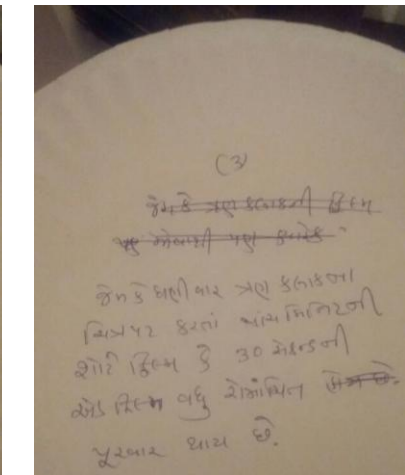 (૩)
જેમ કે ત્રણ કલાકની ફિલ્મ
જોવાથી પણ ક્યારેક
જેમ કે ઘણીવાર ત્રણ કલાકના
ચિત્રપટ કરતાં પાંચ મિનિટની
શોર્ટ ફિલ્મ કે 30 સેકન્ડની
એડ ફિલ્મ વધુ રોમાંચિત
પૂરવાર થાય છે.